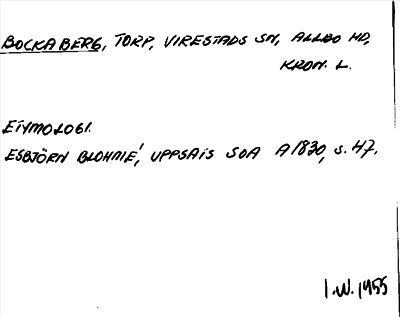 BOCKABERG, TORP, VIRESTADS SN, ALLBO HD,
KRON. L.
ETYMOLOGI.
ESBJÖRN BLOHMÉ, UPPSATS SOA A1830, s. 47.
I.W. 1955